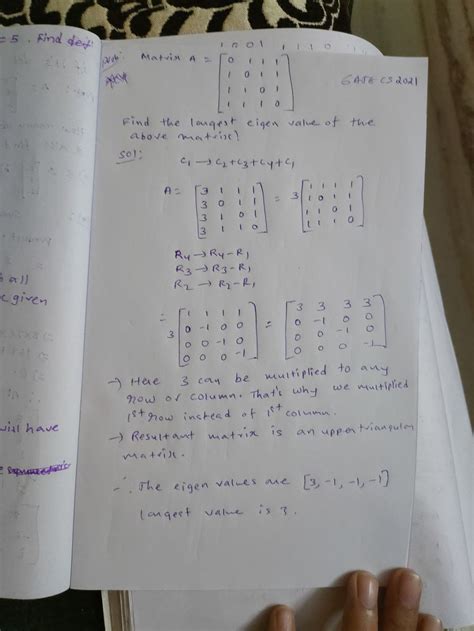 = 5 . Find det
Matrix A = [0 1 1 1
1 0 1 1
1 1 0 1
1 1 1 0]
GATE CS 2021
Find the largest eigen value of the
above matrix?
Sol:
C1 → C2+C3+C4+C1
A = [3 1 1 1
3 0 1 1
3 1 0 1
3 1 1 0] = 3 [1 1 1 1
1 0 1 1
1 1 0 1
1 1 1 0]
R4 → R4-R1
R3 → R3-R1
R2 → R2-R1
∴ 3 [1 1 1 1
0 -1 0 0
0 0 -1 0
0 0 0 -1] = [3 3 3 3
0 -1 0 0
0 0 -1 0
0 0 0 -1]
→ Here 3 can be multiplied to any
row or column. That's why we multiplied
1st row instead of 1st column.
→ Resultant matrix is an uppertriangular
matrix.
∴ The eigen values are [3, -1, -1, -1]
largest value is 3.
all
given
will have